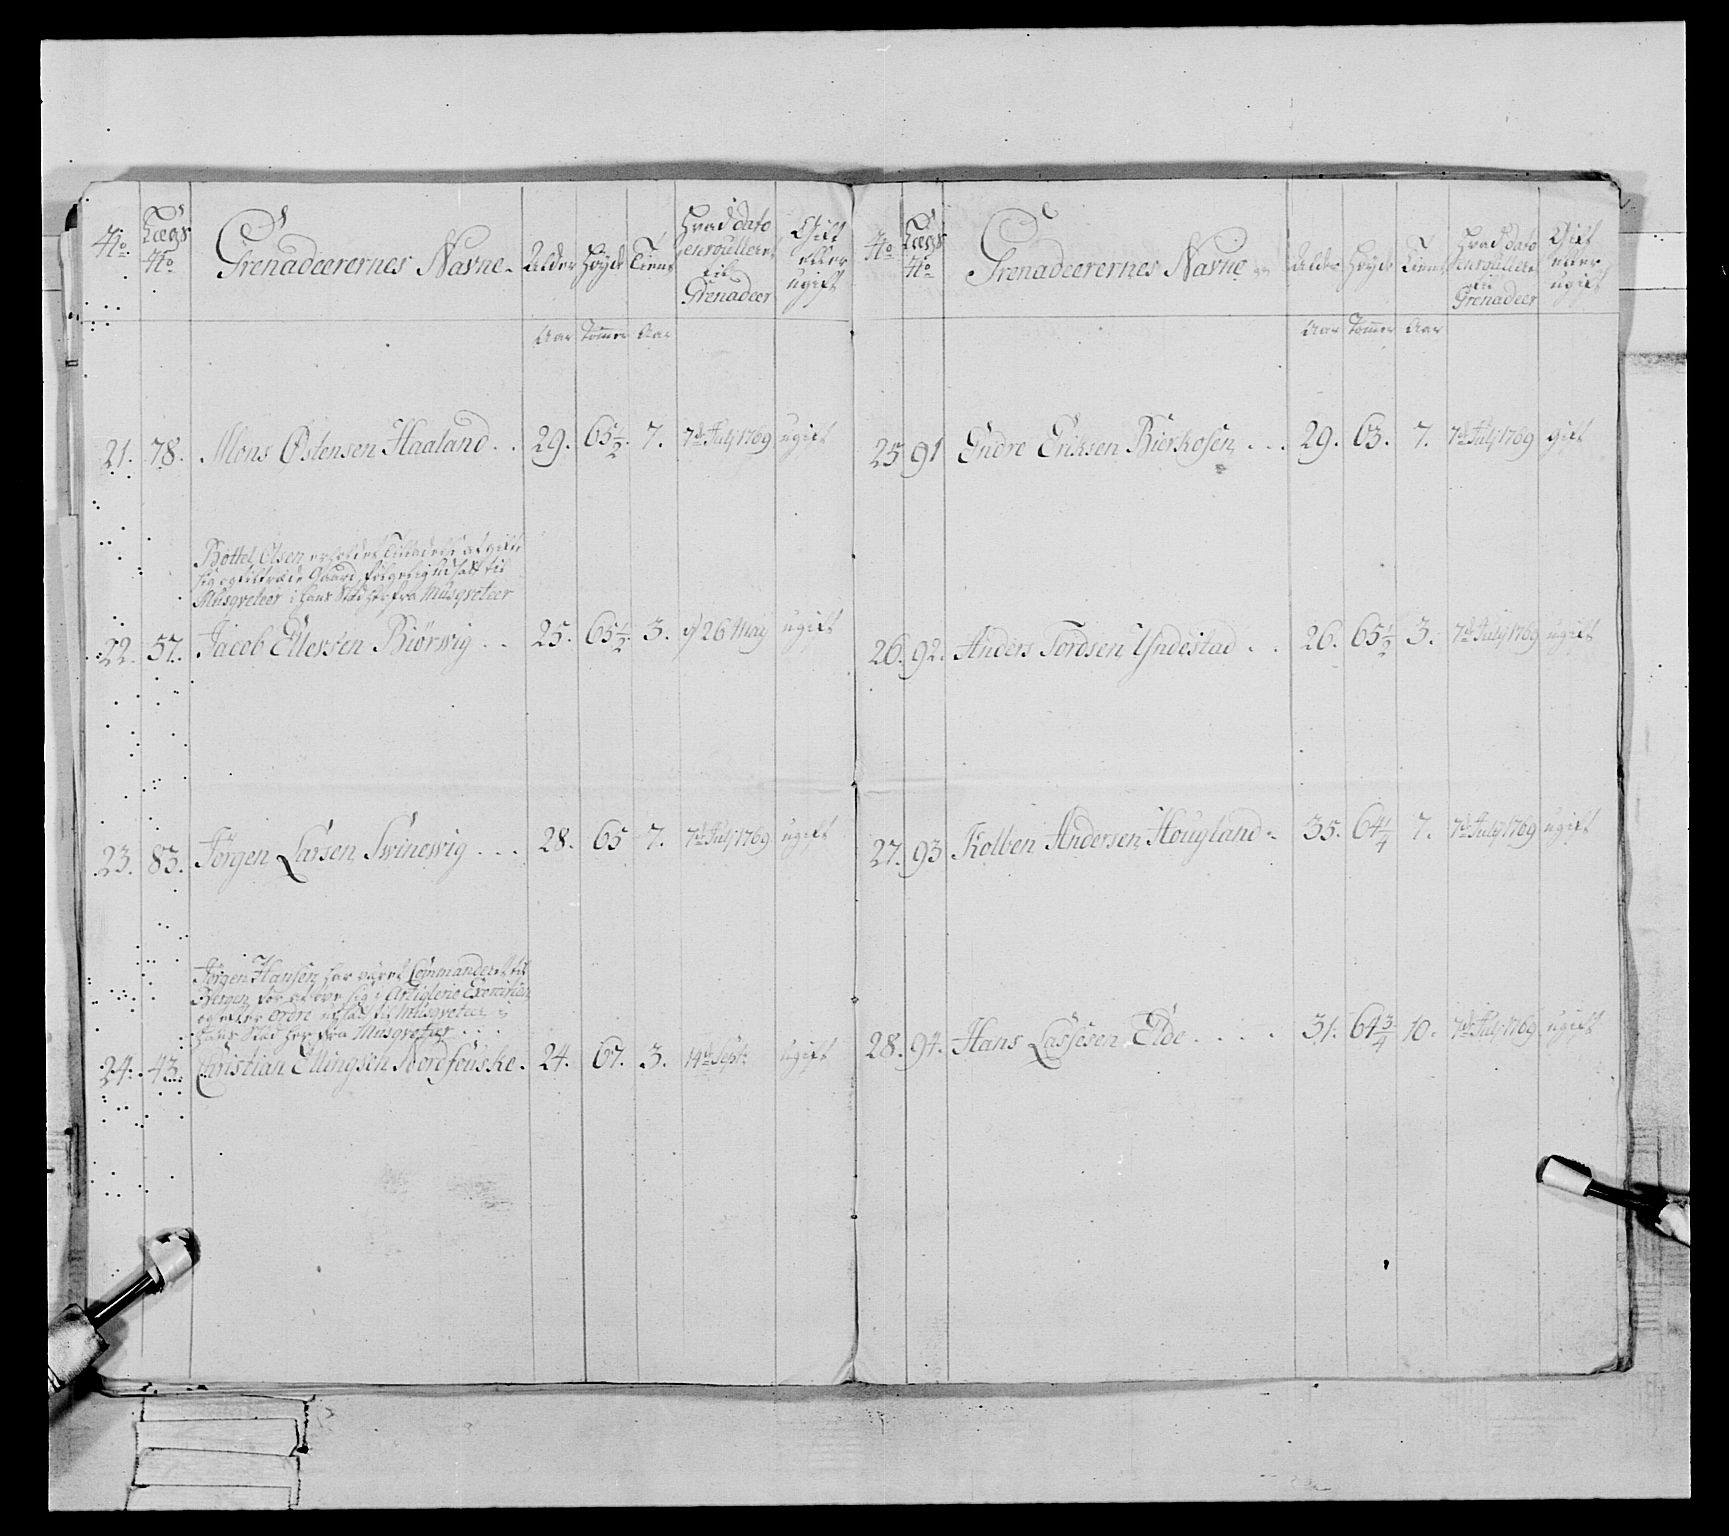 No.
Lægs No.
Grenadeerernes Navne.
Alder
Höyde
Tient
Hvad dato enroulleret til Grenadeer
Gift eller ugift
Aar Tommer Aar
21. 78. Mons Østensen Haaland . . 29. 65 1/2. 7. 7de July 1769 ugift
Bottel Olsen erholdet Tilladelse at gifte
sig og tiltræde Gaard, følgelig udsatt til
Musqveteer i hans Stæd her fra Musqveteer
22. 57. Jacob Ellessen Biörwig . . 25. 65 1/2. 3. 26 May ugift
23. 83. Jörgen Larsen Swinewig . . . 28. 65 7. 7de July 1769 ugift
Jörgen Hansen har været Commanderet til
Bergen for at øve sig i Artiglerie Exercitien
og efter Ordre udsat til Musqveteer i
hans Stæd her fra Musqveteer . . .
24. 43. Christian Ellingsen Nordfouske. 24. 67. 3. 14de Sept: ugift
No.
Lægs No.
Grenadeerernes Navne
Alder
Höyde
Tient
Hvad dato enroulleret til Grenadeer
Gift eller ugift
Aar Tommer Aar
25 91 Endre Eriksen Bierkosen . . . 29. 63. 7. 7de July 1769 gift
26. 92. Anders Tordsen Yndestad . . 26. 65 1/2 3. 7de July 1769 ugift
27. 93 Kolben Andersen Hougland . 35. 64 1/4 7. 7de July 1769 ugift
28. 94. Hans Lassesen Elde . . . . 31. 64 3/4 10. 7de July 1769 ugift